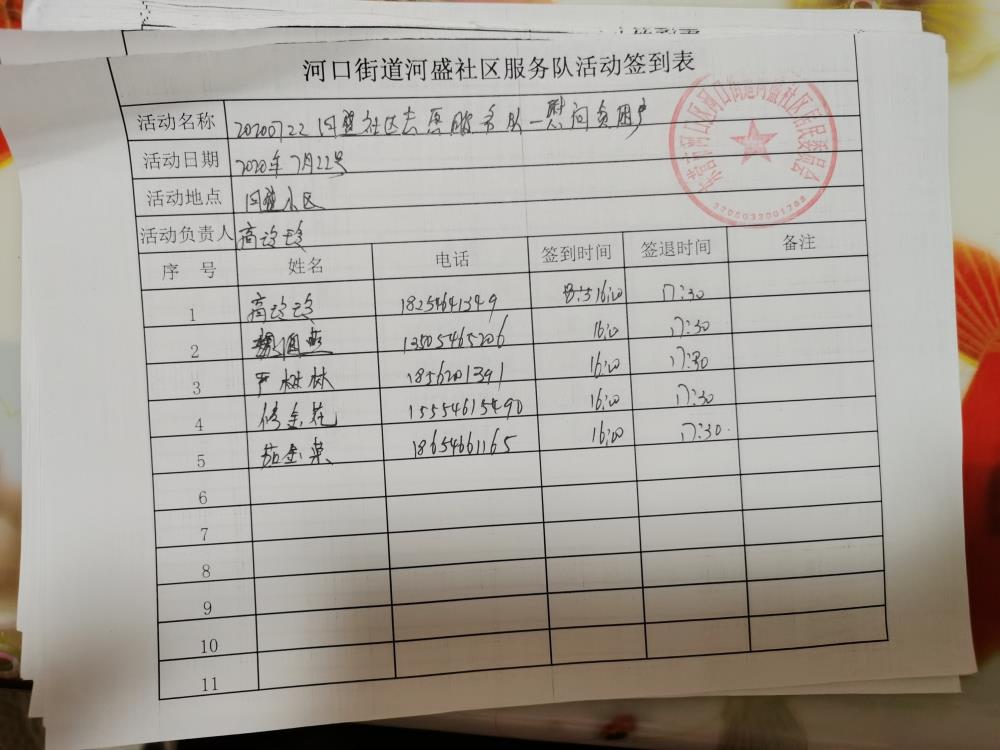 河口街道河盛社区服务队活动签到表
活动名称 20200722河盛社区志愿服务队—慰问贫困户
活动日期 2020年7月22号
活动地点 河盛小区
活动负责人 高玲玲
序 号 姓名 电话 签到时间 签退时间 备注
1 高玲玲 18254641349 16:00 17:30
2 13505465206 16:00 17:30
3 严树林 1856201391 16:00 17:30
4 修金花 15554615490 16:00 17:30
5 18654661165 16:00 17:30
6
7
8
9
10
11
东营市河口区河口街道河盛社区居民委员会
3705033001788